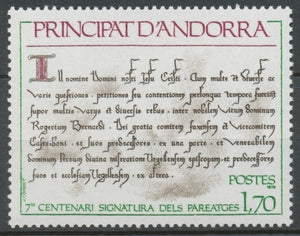 PRINCIPAT D'ANDORRA
In nomine Domini nostri Jesu Cristi. Cum multe et diverse ac
varie questiones, petitiones seu contentiones prolongua tempora fuerint
super multis variis et diversis rebus, inter nobilem virum dominum
Rogerium Bernardi, Dei gratia comitem fuxensem et vicecomitem
Castriboni, et suos predecessores, ex una parte, et venerabilem
Dominum Petrum divina miseratione Urgellensem episcopum, et predecessores
suos et ecclesiam Urgellensem, ex altera,
POSTES
1,70
7e CENTENARI SIGNATURA DELS PAREATGES